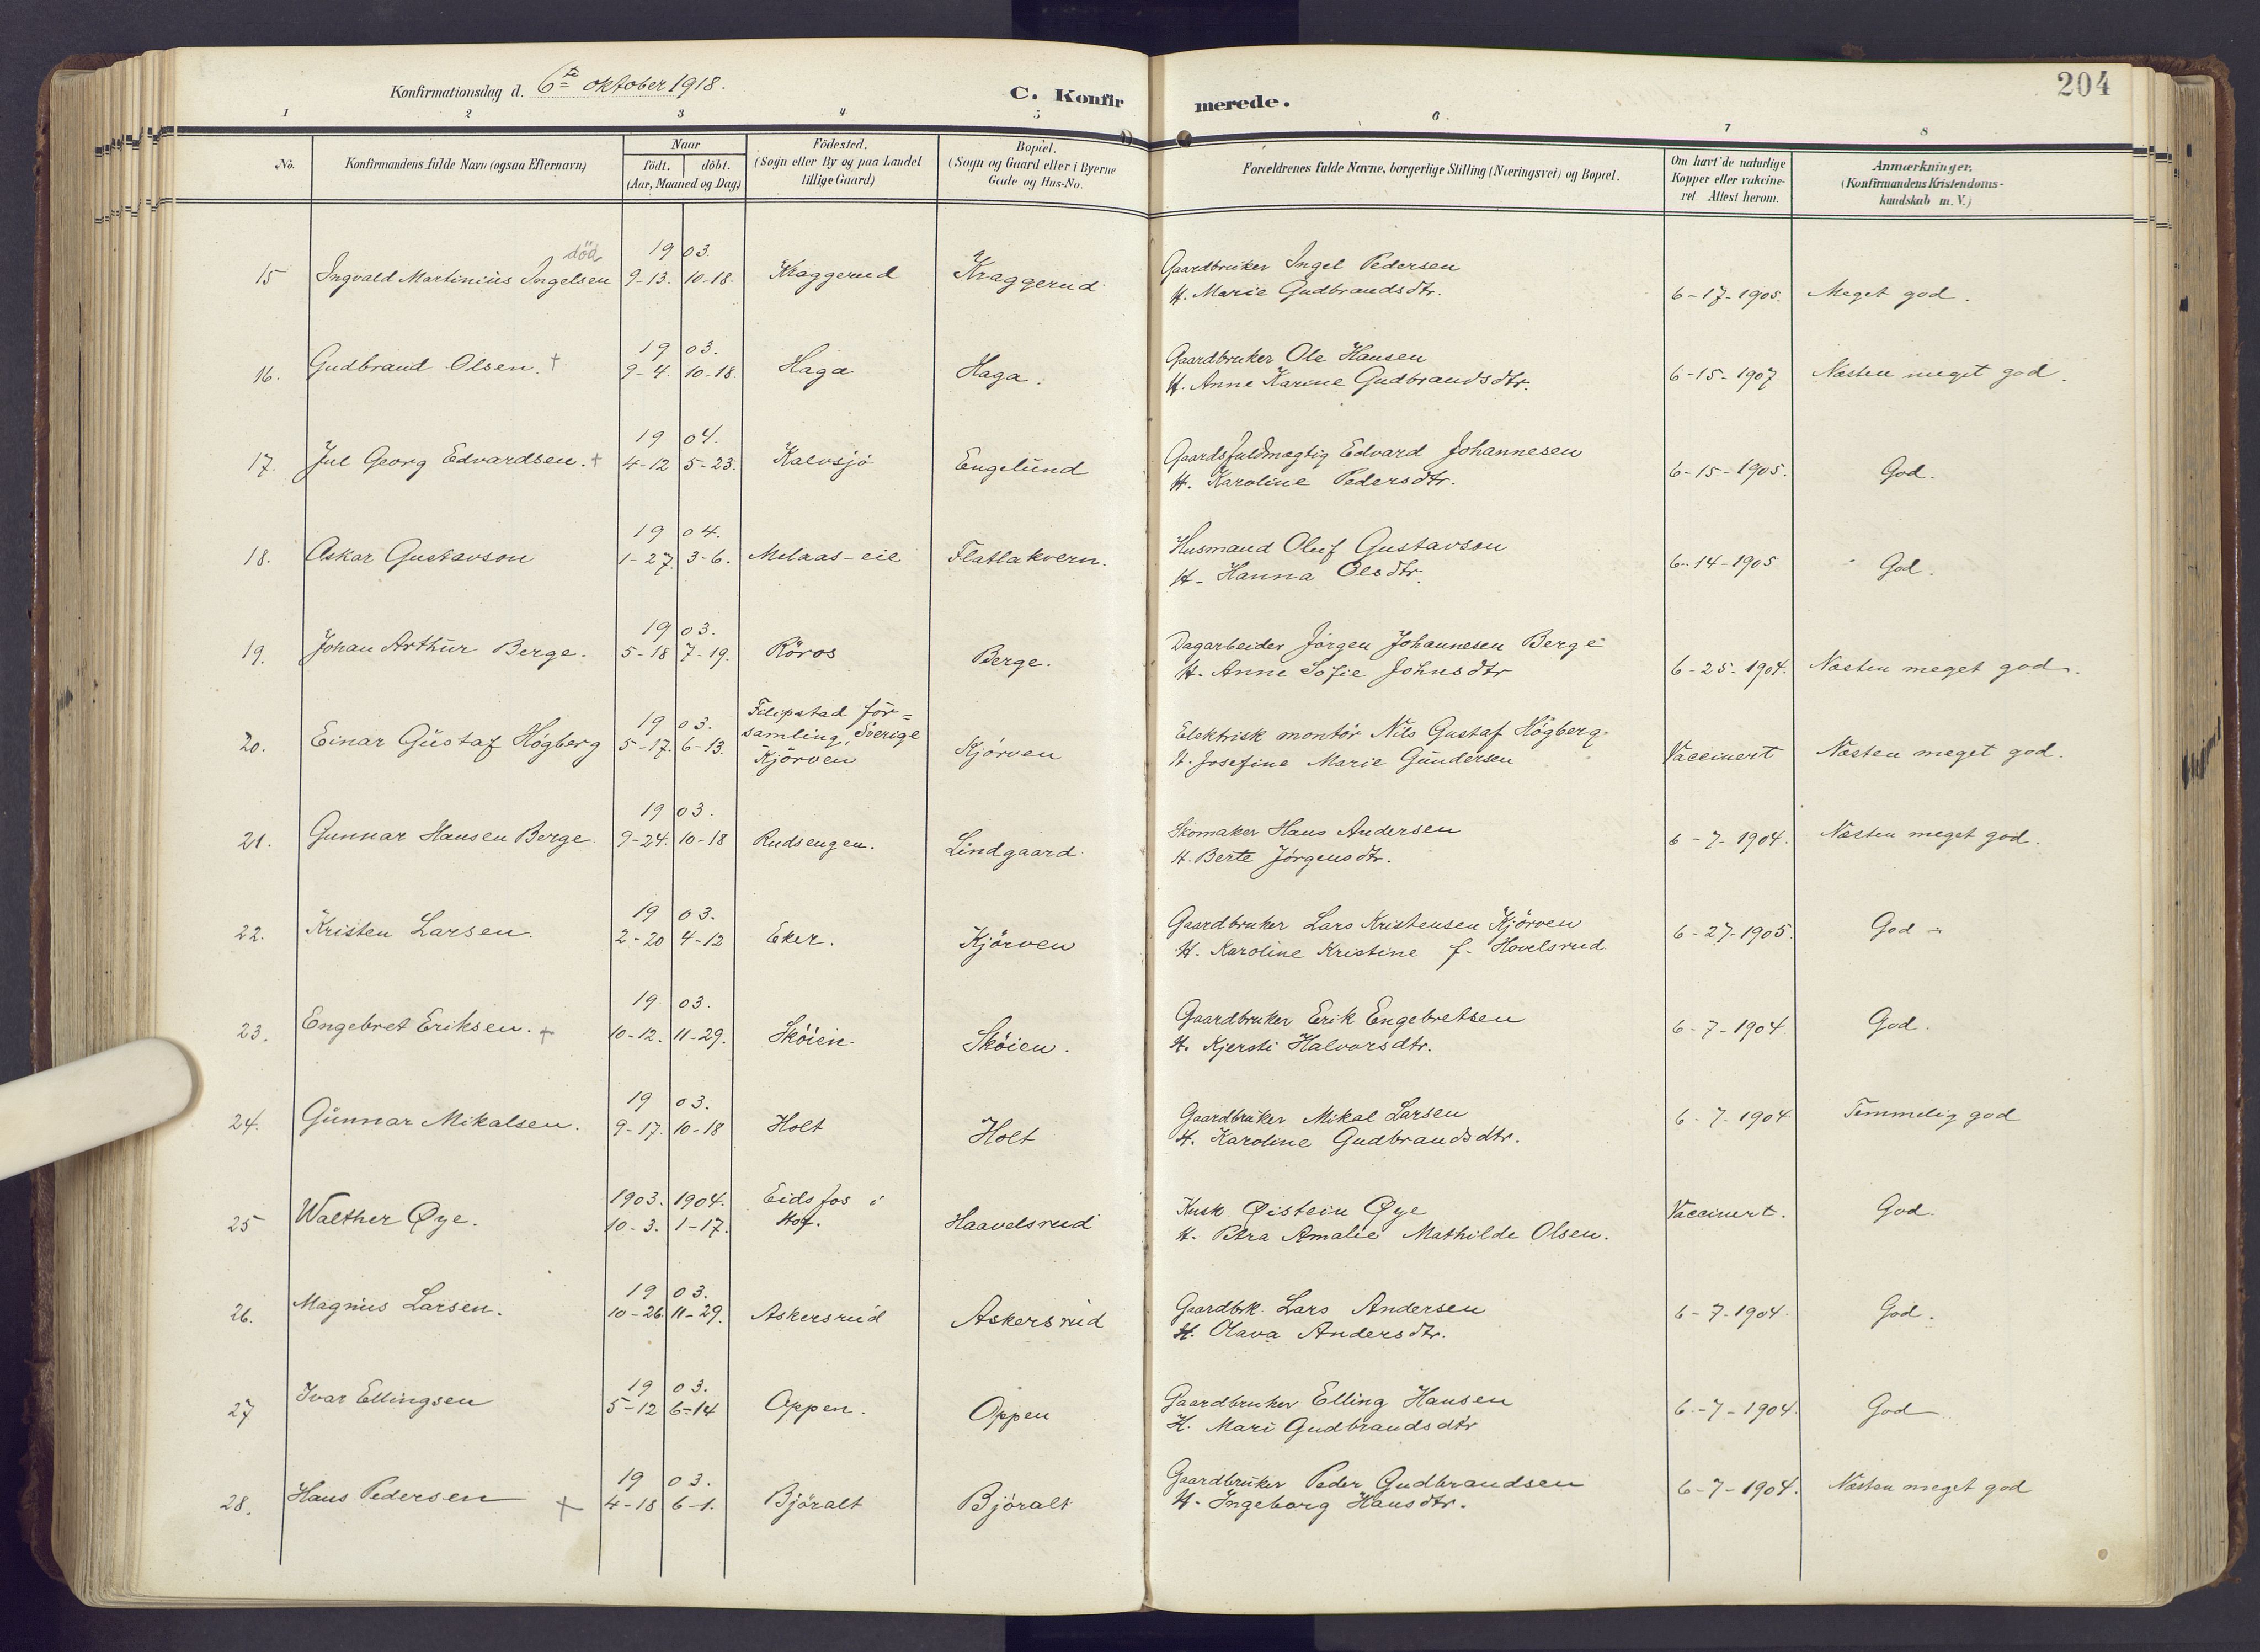 204
Konfirmationsdag d. 6te oktober 1918.
C. Konfirmerede.
1 2 3 4 5 6 7 8
No. Konfirmandens fulde Navn (ogsaa Efternavn) Naar født. døbt. (Aar, Maaned og Dag) Fødested. (Sogn eller By og paa Landet tillige Gaard) Bopæl. (Sogn og Gaard eller i Byerne Gade og Hus-No. Forældrenes fulde Navne, borgerlige Stilling (Næringsvei) og Bopæl. Om havt de naturlige Kopper eller vakcineret Attest herom. Anmærkninger. (Konfirmandens Kristendomskundskab m. V.)
død
15 Ingvald Martinius Ingelsen 1903. 9-13. 10-18. Kraggerud Kraggerud Gaardbruker Ingel Pedersen
H. Marie Gudbrandsdtr. 6-17-1905. Meget god.
16. Gudbrand Olsen. + 1903. 9-4. 10-18. Haga Haga. Gaardbruker Ole Hansen
H. Anne Karine Gudbrandsdtr. 6-15-1907 Næsten meget god.
17. Jul Georg Edvardsen. + 1904. 4-12 5-23. Kalvsjø Engelund Gaardsfuldmægtig Edvard Johannesen
H. Karoline Pedersdtr. 6-15-1905. God.
18. Oskar Gustavson 1904. 1-27. 3-6. Melaas-eie Flatlakvern. Husmand Oluf Gustavson
H. Hanna Olsdtr. 6-14-1905 God.
19. Johan Arthur Berge. 1903. 5-18 7-19. Röros Berge. Dagarbeider Jørgen Johannesen Berge
H. Anne Sofie Johnsdtr 6-25-1904. Næsten meget god.
20. Einar Gustaf Högberg 1903. 5-17. 6-13. Filipstad för=
samling, Sverige
Kjörven Kjørven Elektrisk montör Nils Gustaf Högberg
H. Josefine Marie Gundersen Vaccinert Næsten meget god.
21. Gunnar Hansen Berge 1903. 9-24. 10-18 Rudsengen. Lindgaard Skomaker Hans Andersen
H. Berte Jørgensdtr. 6-7-1904. Næsten meget god.
22. Kristen Larsen. 1903. 2-20 4-12 Eker. Kjörven Gaardbruker Lars Kristensen Kjörven
H. Karoline Kristine f. Hovelsrud 6-27-1905. God
23. Engebret Eriksen. + 1903. 10-12. 11-29. Sköien Sköien. Gaardbruker Erik Engebretsen
H. Kjersti Halvorsdtr. 6-7-1904. God.
24. Gunnar Mikalsen. 1903. 9-17. 10-18 Holt Holt Gaardbruker Mikal Larsen
H. Karoline Gudbrandsdtr. 6-7-1904 Temmelig god
25 Walther Øye. 1903. 1904. 10-3. 1-17. Eidsfos i
Hof. Haavelsrud Kusk Øistein Øye
H. Petra Amalie Mathilde Olsen. Vaccinert. God.
26. Magnus Larsen. 1903. 10-26 11-29. Askersrud Askersrud Gaardbrk. Lars Andersen
H. Olava Andersdtr. 6-7-1904. God.
27 Ivar Ellingsen 1903. 5-12 6-14 Oppen. Oppen Gaardbruker Elling Hansen
H. Mari Gudbrandsdtr 6-7-1904. God
28. Hans Pedersen + 1903. 4-18 6-1. Björalt Björalt Gaardbruker Peder Gudbrandsen
H. Ingeborg Hansdtr. 6-7-1904. Næsten meget god